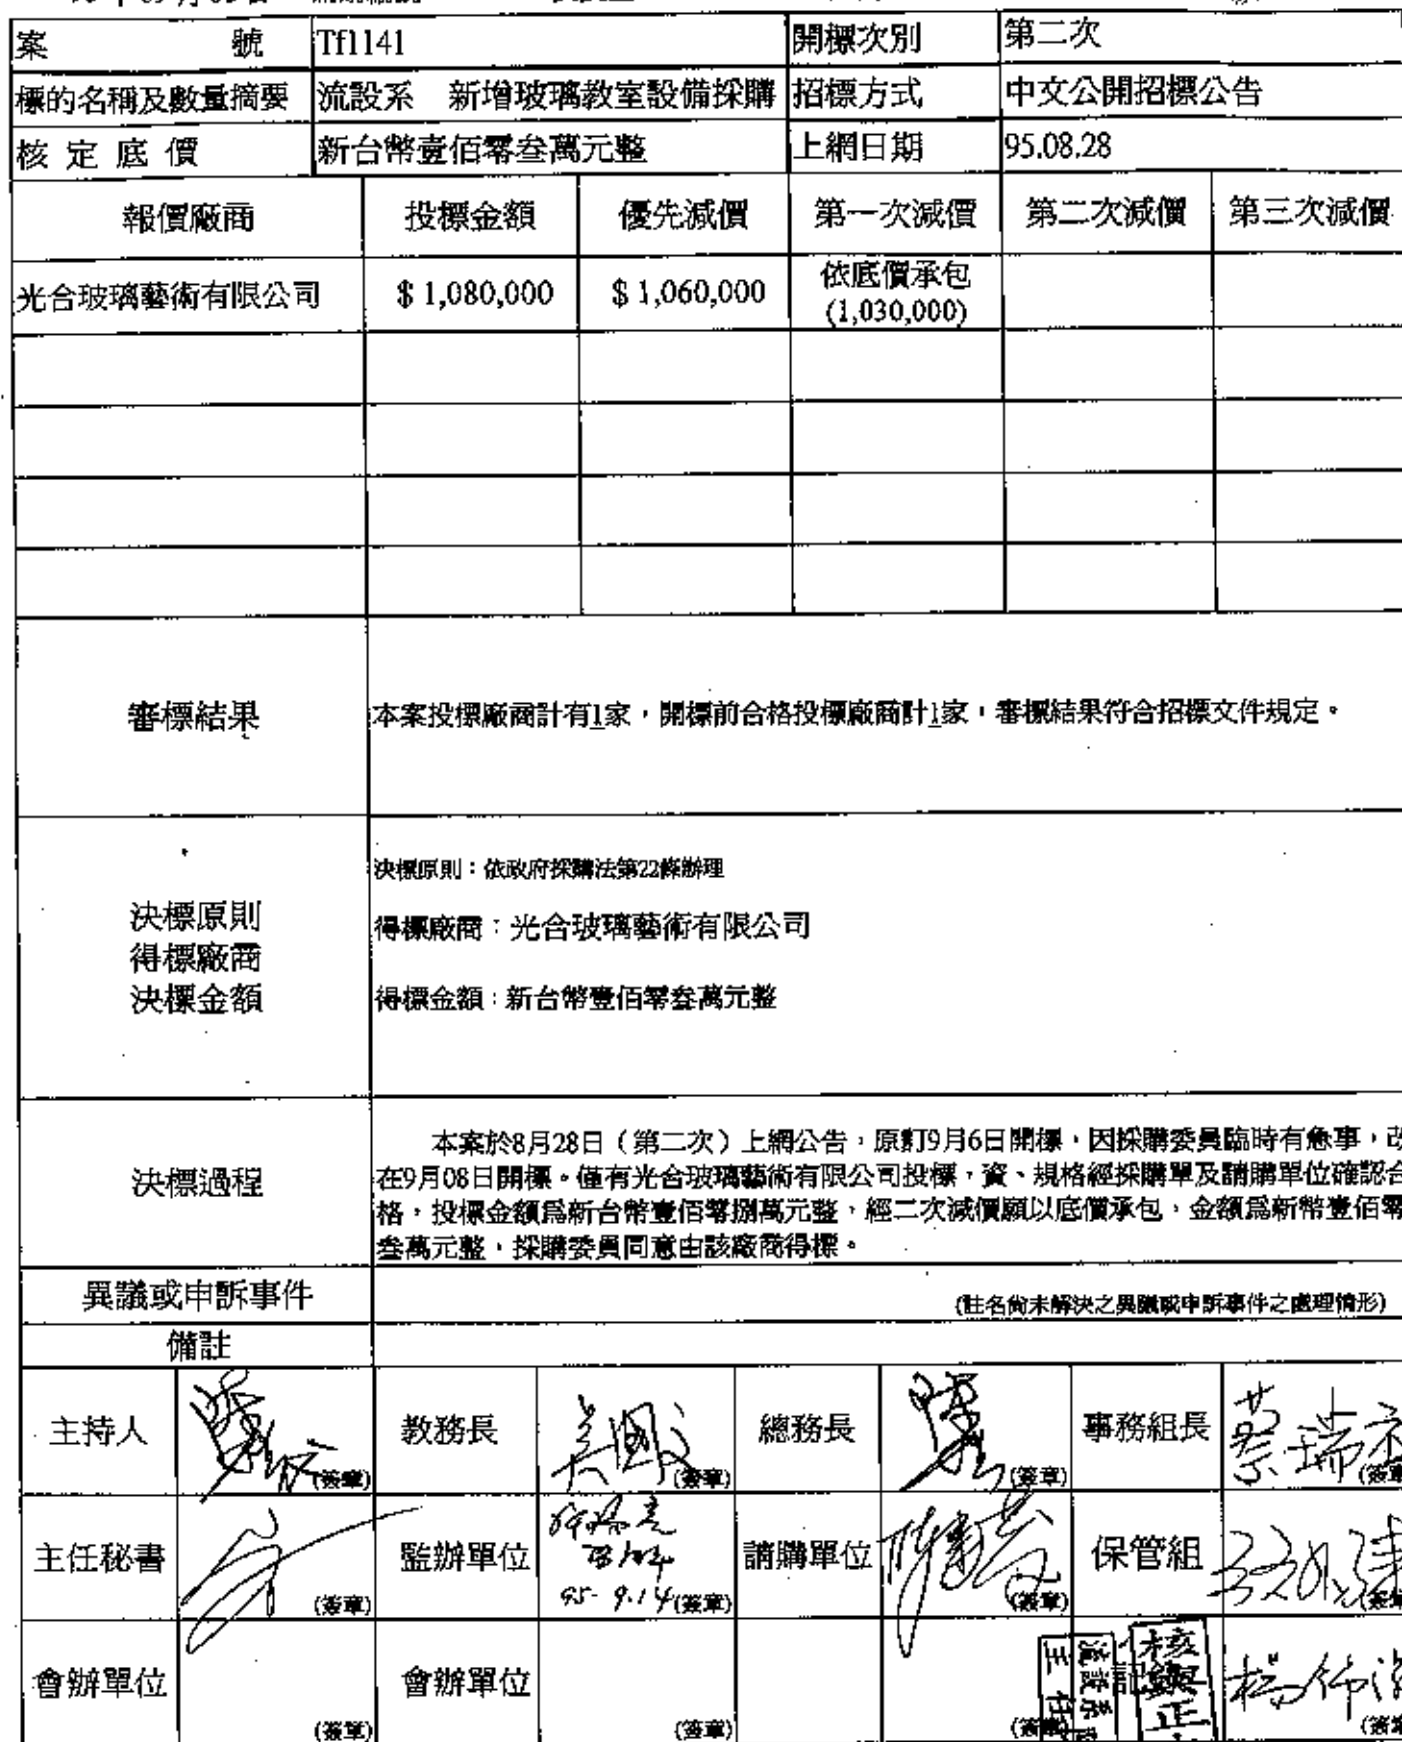 案 號 Tf1141 開標次別 第二次
標的名稱及數量摘要 流設系 新增玻璃教室設備採購 招標方式 中文公開招標公告
核定底價 新台幣壹佰零叁萬元整 上網日期 95.08.28
報價廠商 投標金額 優先減價 第一次減價 第二次減價 第三次減價
光合玻璃藝術有限公司 $1,080,000 $1,060,000 依底價承包
(1,030,000)
審標結果 本案投標廠商計有1家，開標前合格投標廠商計1家，審標結果符合招標文件規定。
決標原則：依政府採購法第22條辦理
決標原則
得標廠商：光合玻璃藝術有限公司
得標廠商
決標金額 得標金額：新台幣壹佰零叁萬元整
本案於8月28日（第二次）上網公告，原訂9月6日開標，因採購委員臨時有急事，改
決標過程 在9月08日開標。僅有光合玻璃藝術有限公司投標，資、規格經採購單及請購單位確認合
格，投標金額為新台幣壹佰零捌萬元整，經二次減價願以底價承包，金額為新幣壹佰零
叁萬元整，採購委員同意由該廠商得標。
異議或申訴事件 (註名尚未解決之異議或申訴事件之處理情形)
備註
主持人 (簽章) 教務長 吳國文 (簽章) 總務長 (簽章) 事務組長 蔡瑞 (簽章
主任秘書 (簽章) 監辦單位 95-9.14 (簽章) 請購單位 (簽章) 保管組 (簽章
會辦單位 (簽章) 會辦單位 (簽章) (簽章 流設系 主任 核 正 楊佈 (簽章